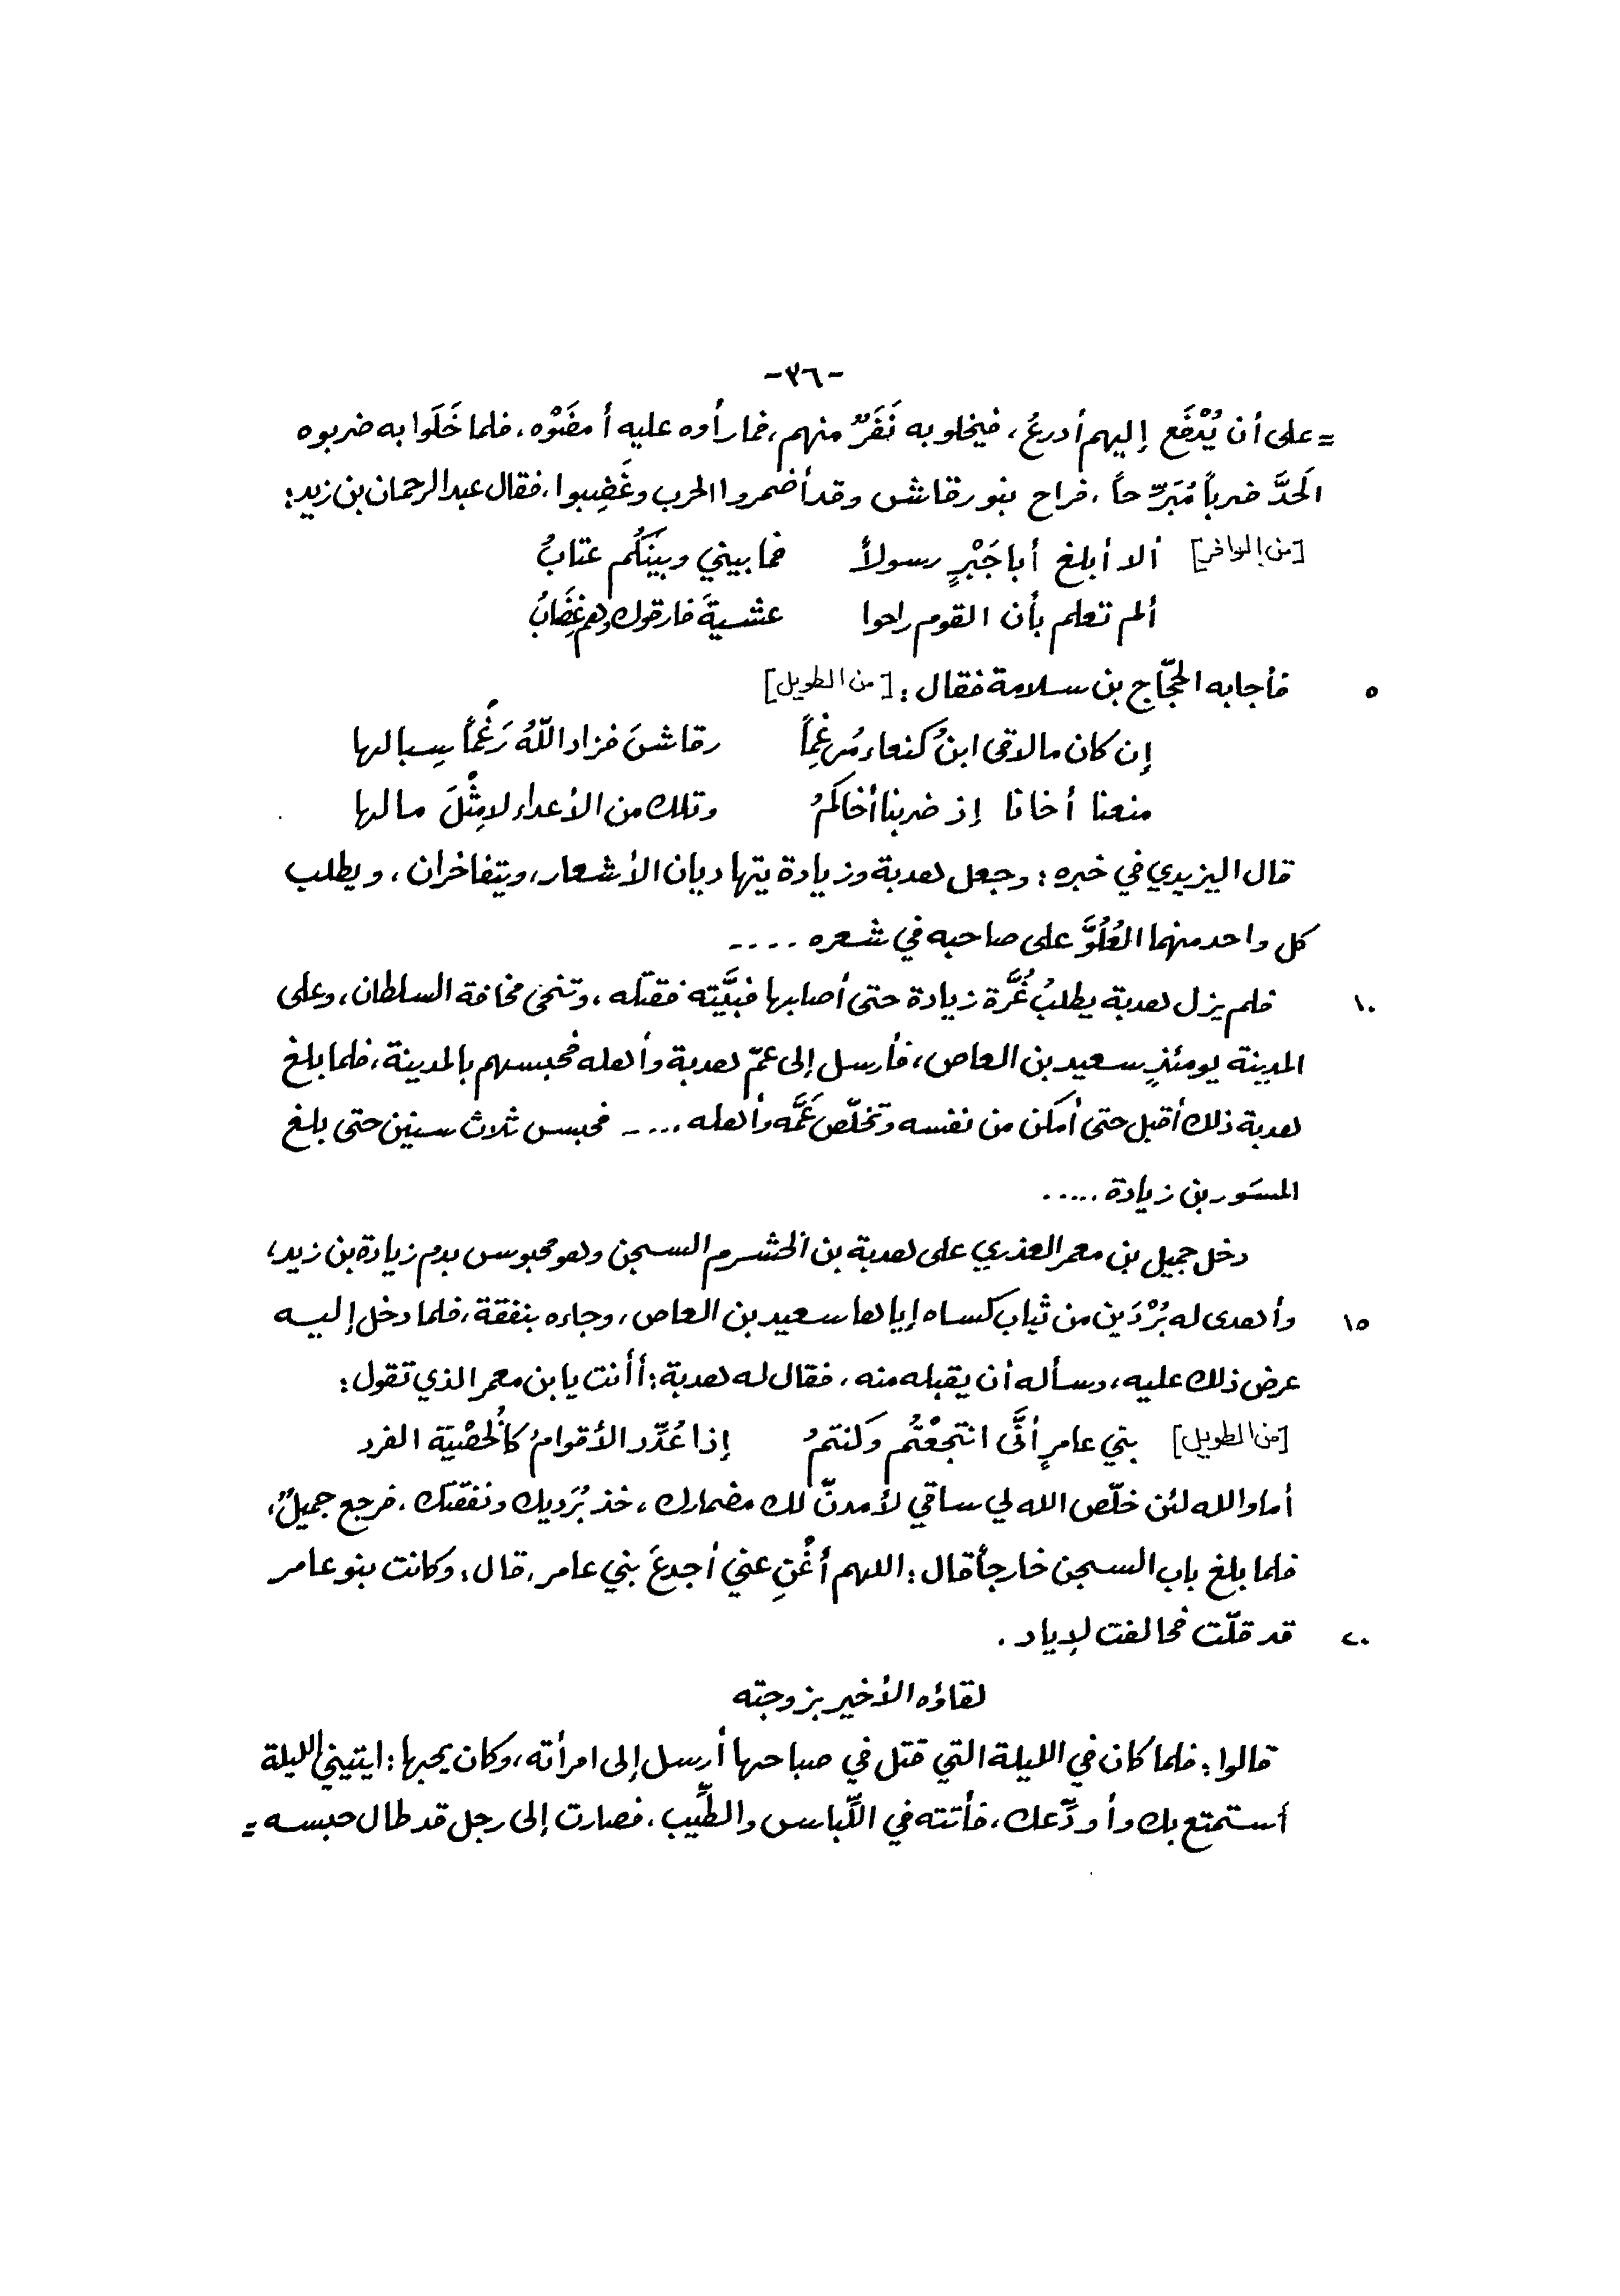 -٣٦-
= على أن يُدْفَع إليهم أدرعُ، فيخلو به نَفَرٌ منهم، فما رأوه عليه أمضَوْه، فلما خَلَوا به ضربوه
الحَدَّ ضرباً مُبَرِّحاً، فراح بنو رقاش وقد أضمروا الحرب وغَضِبوا، فقال عبد الرحمان بن زيد:
[من الوافر] ألا أبلغ أبا جَبْرٍ رسولاً فما بيني وبينَكُم عتابُ
ألم تعلم بأن القوم راحوا عشيةَ فارقوك وهم غِضَابُ
٥ فأجابه الحجّاج بن سلامة فقال: [من الطويل]
إن كان ما لاقى ابنُ كنعاء مُرغِماً رقاشَ فزاد اللّهُ رَغْماً سِبالها
منعنا أخانا إذ ضربنا أخاكمُ وتلك من الأعداء لا مِثْلَ مالها
قال اليزيدي في خبره: وجعل هدبة وزيادة يتهاديان الأشعار، ويتفاخران، ويطلب
كل واحد منهما العُلُوَّ على صاحبه في شعره ....
١٠ فلم يزل هدبة يطلبُ غُرَّة زيادة حتى أصابها فبيَّته فقتله، وتنحى مخافة السلطان، وعلى
المدينة يومئذٍ سعيد بن العاص، فأرسل إلى عمّ هدبة وأهله فحبسهم بالمدينة، فلما بلغ
هدبة ذلك أقبل حتى أمكن من نفسه وتخلّص عَمَّه وأهله .... فحبس ثلاث سنين حتى بلغ
المسَور بن زيادة .....
دخل جميل بن معمر العذري على هدبة بن الخشرم السجن وهو محبوس بدم زيادة بن زيد،
١٥ وأهدى له بُرْدَين من ثياب كساه إياها سعيد بن العاص، وجاءه بنفقة، فلما دخل إليه
عرض ذلك عليه، وسأله أن يقبله منه، فقال له هدبة: أأنت يا بن معمر الذي تقول:
[من الطويل] بني عامرٍ أنَّى انتجعْتُم وكنتمُ إذا عُدِّد الأقوامُ كالخُصْيَة الفرد
أما والله لئن خلّص الله لي ساقي لأمدنّ لك مضمارك، خذ بُرَديك ونفقتك، فرجع جميلٌ،
فلما بلغ باب السجن خارجاً قال: اللهم أغْنِ عني أجدعَ بني عامر، قال: وكانت بنو عامر
٢٠ قد قلّت فحالفت لإياد.
لقاؤه الأخير بزوجته
قالوا: فلما كان في الليلة التي قتل في صباحها أرسل إلى امرأته، وكان يحبها: ايتيني الليلة
أستمتع بك وأودِّعك، فأتته في اللِّباس والطِّيب، فصارت إلى رجل قد طال حبسه =